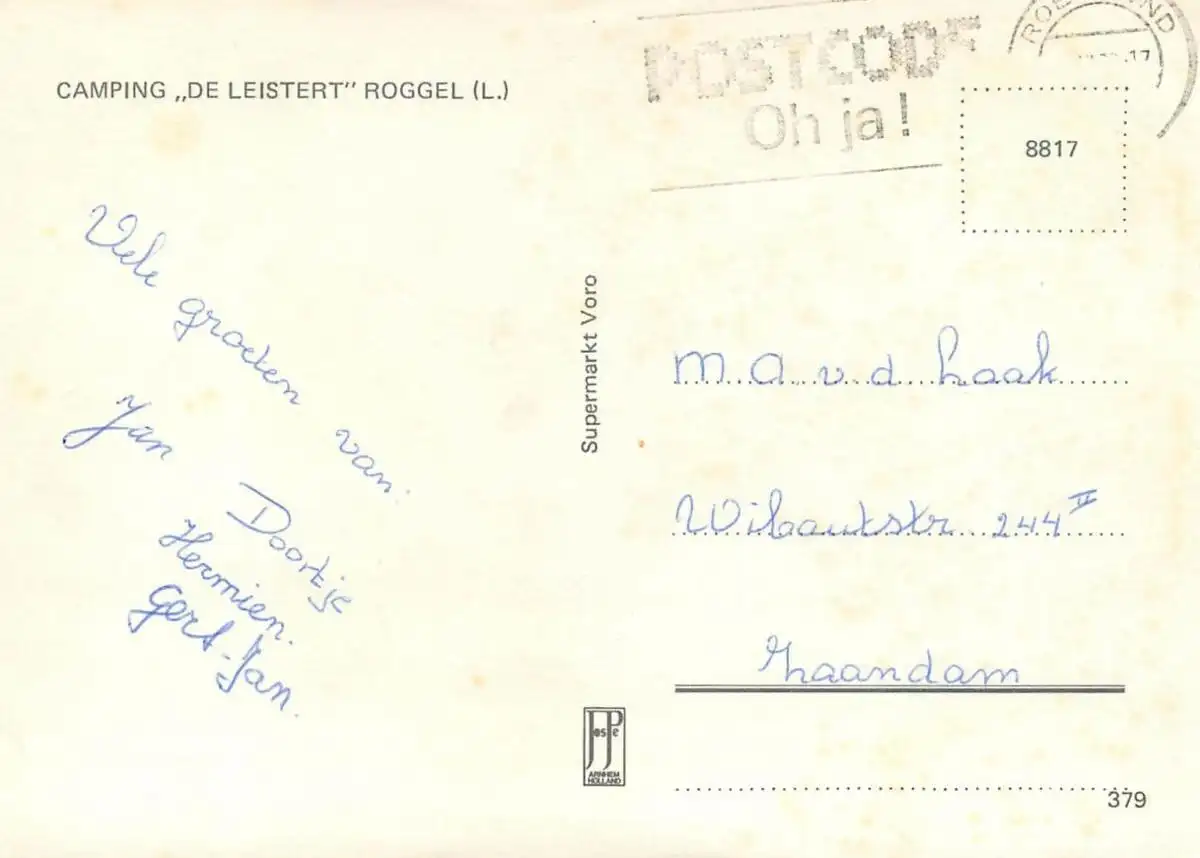 CAMPING „DE LEISTERT” ROGGEL (L.)
POSTCODE
Oh ja!
8817
Vele groeten van:
Jan Doortje
Hermien.
Gert-Jan.
Supermarkt Voro
M A v d Laak
Wibautstr 244 II
Zaandam
JosPe
ARNHEM
HOLLAND
379